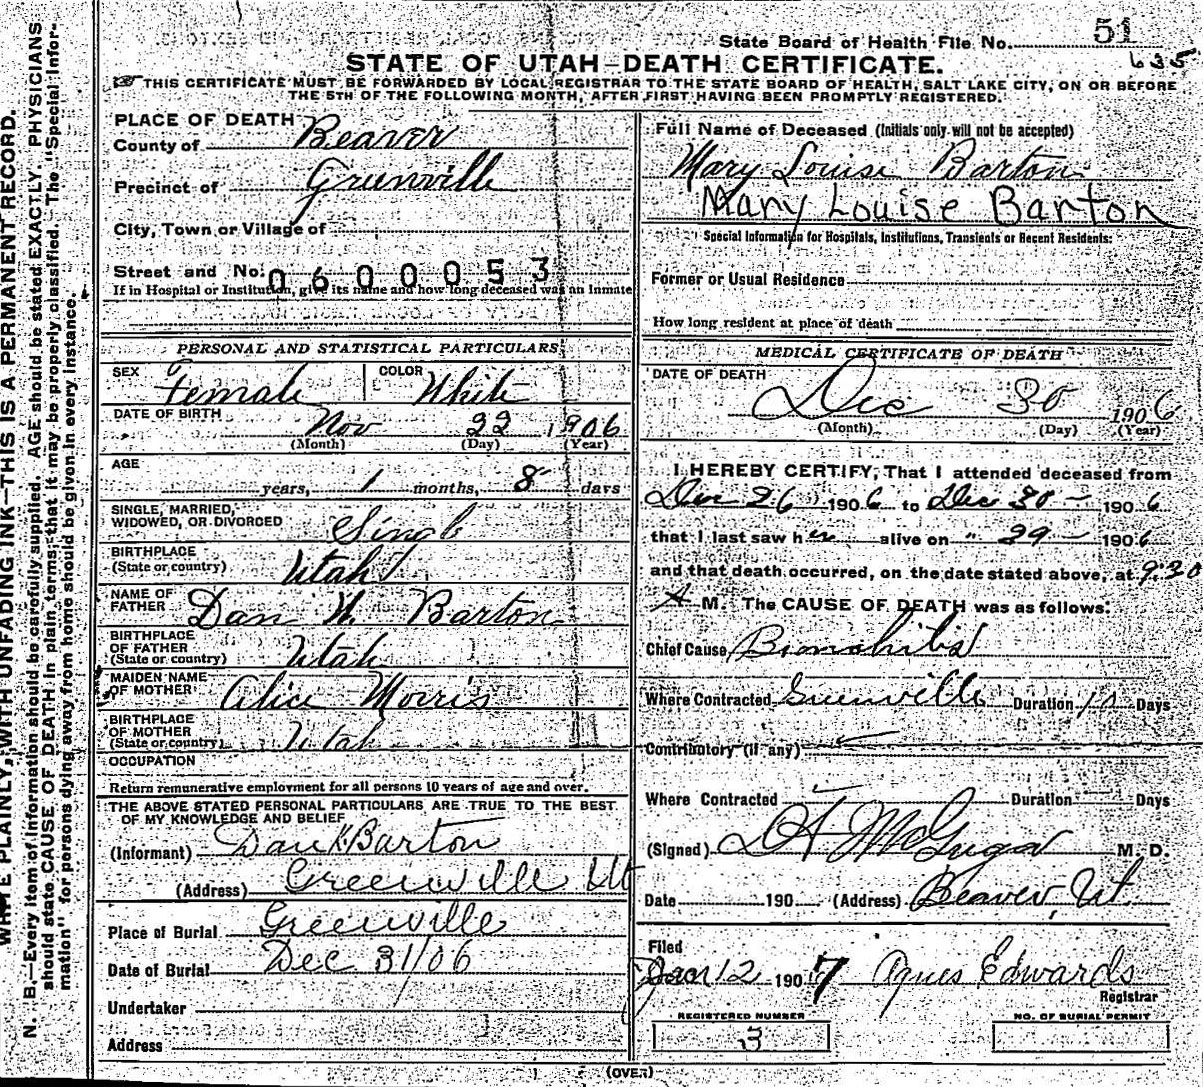 WRITE PLAINLY, WITH UNFADING INK—THIS IS A PERMANENT RECORD.
N. B.—Every item of information should be carefully supplied. AGE should be stated EXACTLY. PHYSICIANS
should state CAUSE OF DEATH in plain terms, that it may be properly classified. The "Special Infor-
mation" for persons dying away from home should be given in every instance.
State Board of Health File No. 51
635
STATE OF UTAH—DEATH CERTIFICATE.
THIS CERTIFICATE MUST BE FORWARDED BY LOCAL REGISTRAR TO THE STATE BOARD OF HEALTH, SALT LAKE CITY, ON OR BEFORE
THE 5TH OF THE FOLLOWING MONTH, AFTER FIRST HAVING BEEN PROMPTLY REGISTERED.
PLACE OF DEATH
County of Beaver
Precinct of Greenville
City, Town or Village of
Street and No. 0600053
If in Hospital or Institution, give its name and how long deceased was an Inmate
PERSONAL AND STATISTICAL PARTICULARS
SEX Female COLOR White
DATE OF BIRTH Nov 22 1906
(Month) (Day) (Year)
AGE
years, 1 months, 8 days
SINGLE, MARRIED,
WIDOWED, OR DIVORCED Single
BIRTHPLACE
(State or country) Utah
NAME OF
FATHER Dan K. Barton
BIRTHPLACE
OF FATHER
(State or country) Utah
MAIDEN NAME
OF MOTHER Alice Morris
BIRTHPLACE
OF MOTHER
(State or country) Utah
OCCUPATION
Return remunerative employment for all persons 10 years of age and over.
THE ABOVE STATED PERSONAL PARTICULARS ARE TRUE TO THE BEST
OF MY KNOWLEDGE AND BELIEF
(Informant) Dan K. Barton
(Address) Greenville Ut
Place of Burial Greenville
Date of Burial Dec 31/06
Undertaker
Address
Full Name of Deceased (Initials only will not be accepted)
Mary Louise Barton
Mary Louise Barton
Special Information for Hospitals, Institutions, Transients or Recent Residents:
Former or Usual Residence
How long resident at place of death
MEDICAL CERTIFICATE OF DEATH
DATE OF DEATH
Dec 30 1906
(Month) (Day) (Year)
I HEREBY CERTIFY, That I attended deceased from
Dec 26 1906 to Dec 30 — 1906
that I last saw her alive on " 29 — 1906
and that death occurred, on the date stated above, at 9.30
A M. The CAUSE OF DEATH was as follows:
Chief Cause Bronchitis
Where Contracted Greenville Duration 10 Days
Contributory (if any)
Where Contracted Duration Days
(Signed) M. D.
Date 190 (Address) Beaver, Ut.
Filed
Jan 12 1907 Agnes Edwards
Registrar
REGISTERED NUMBER
3
NO. OF BURIAL PERMIT
(OVER)